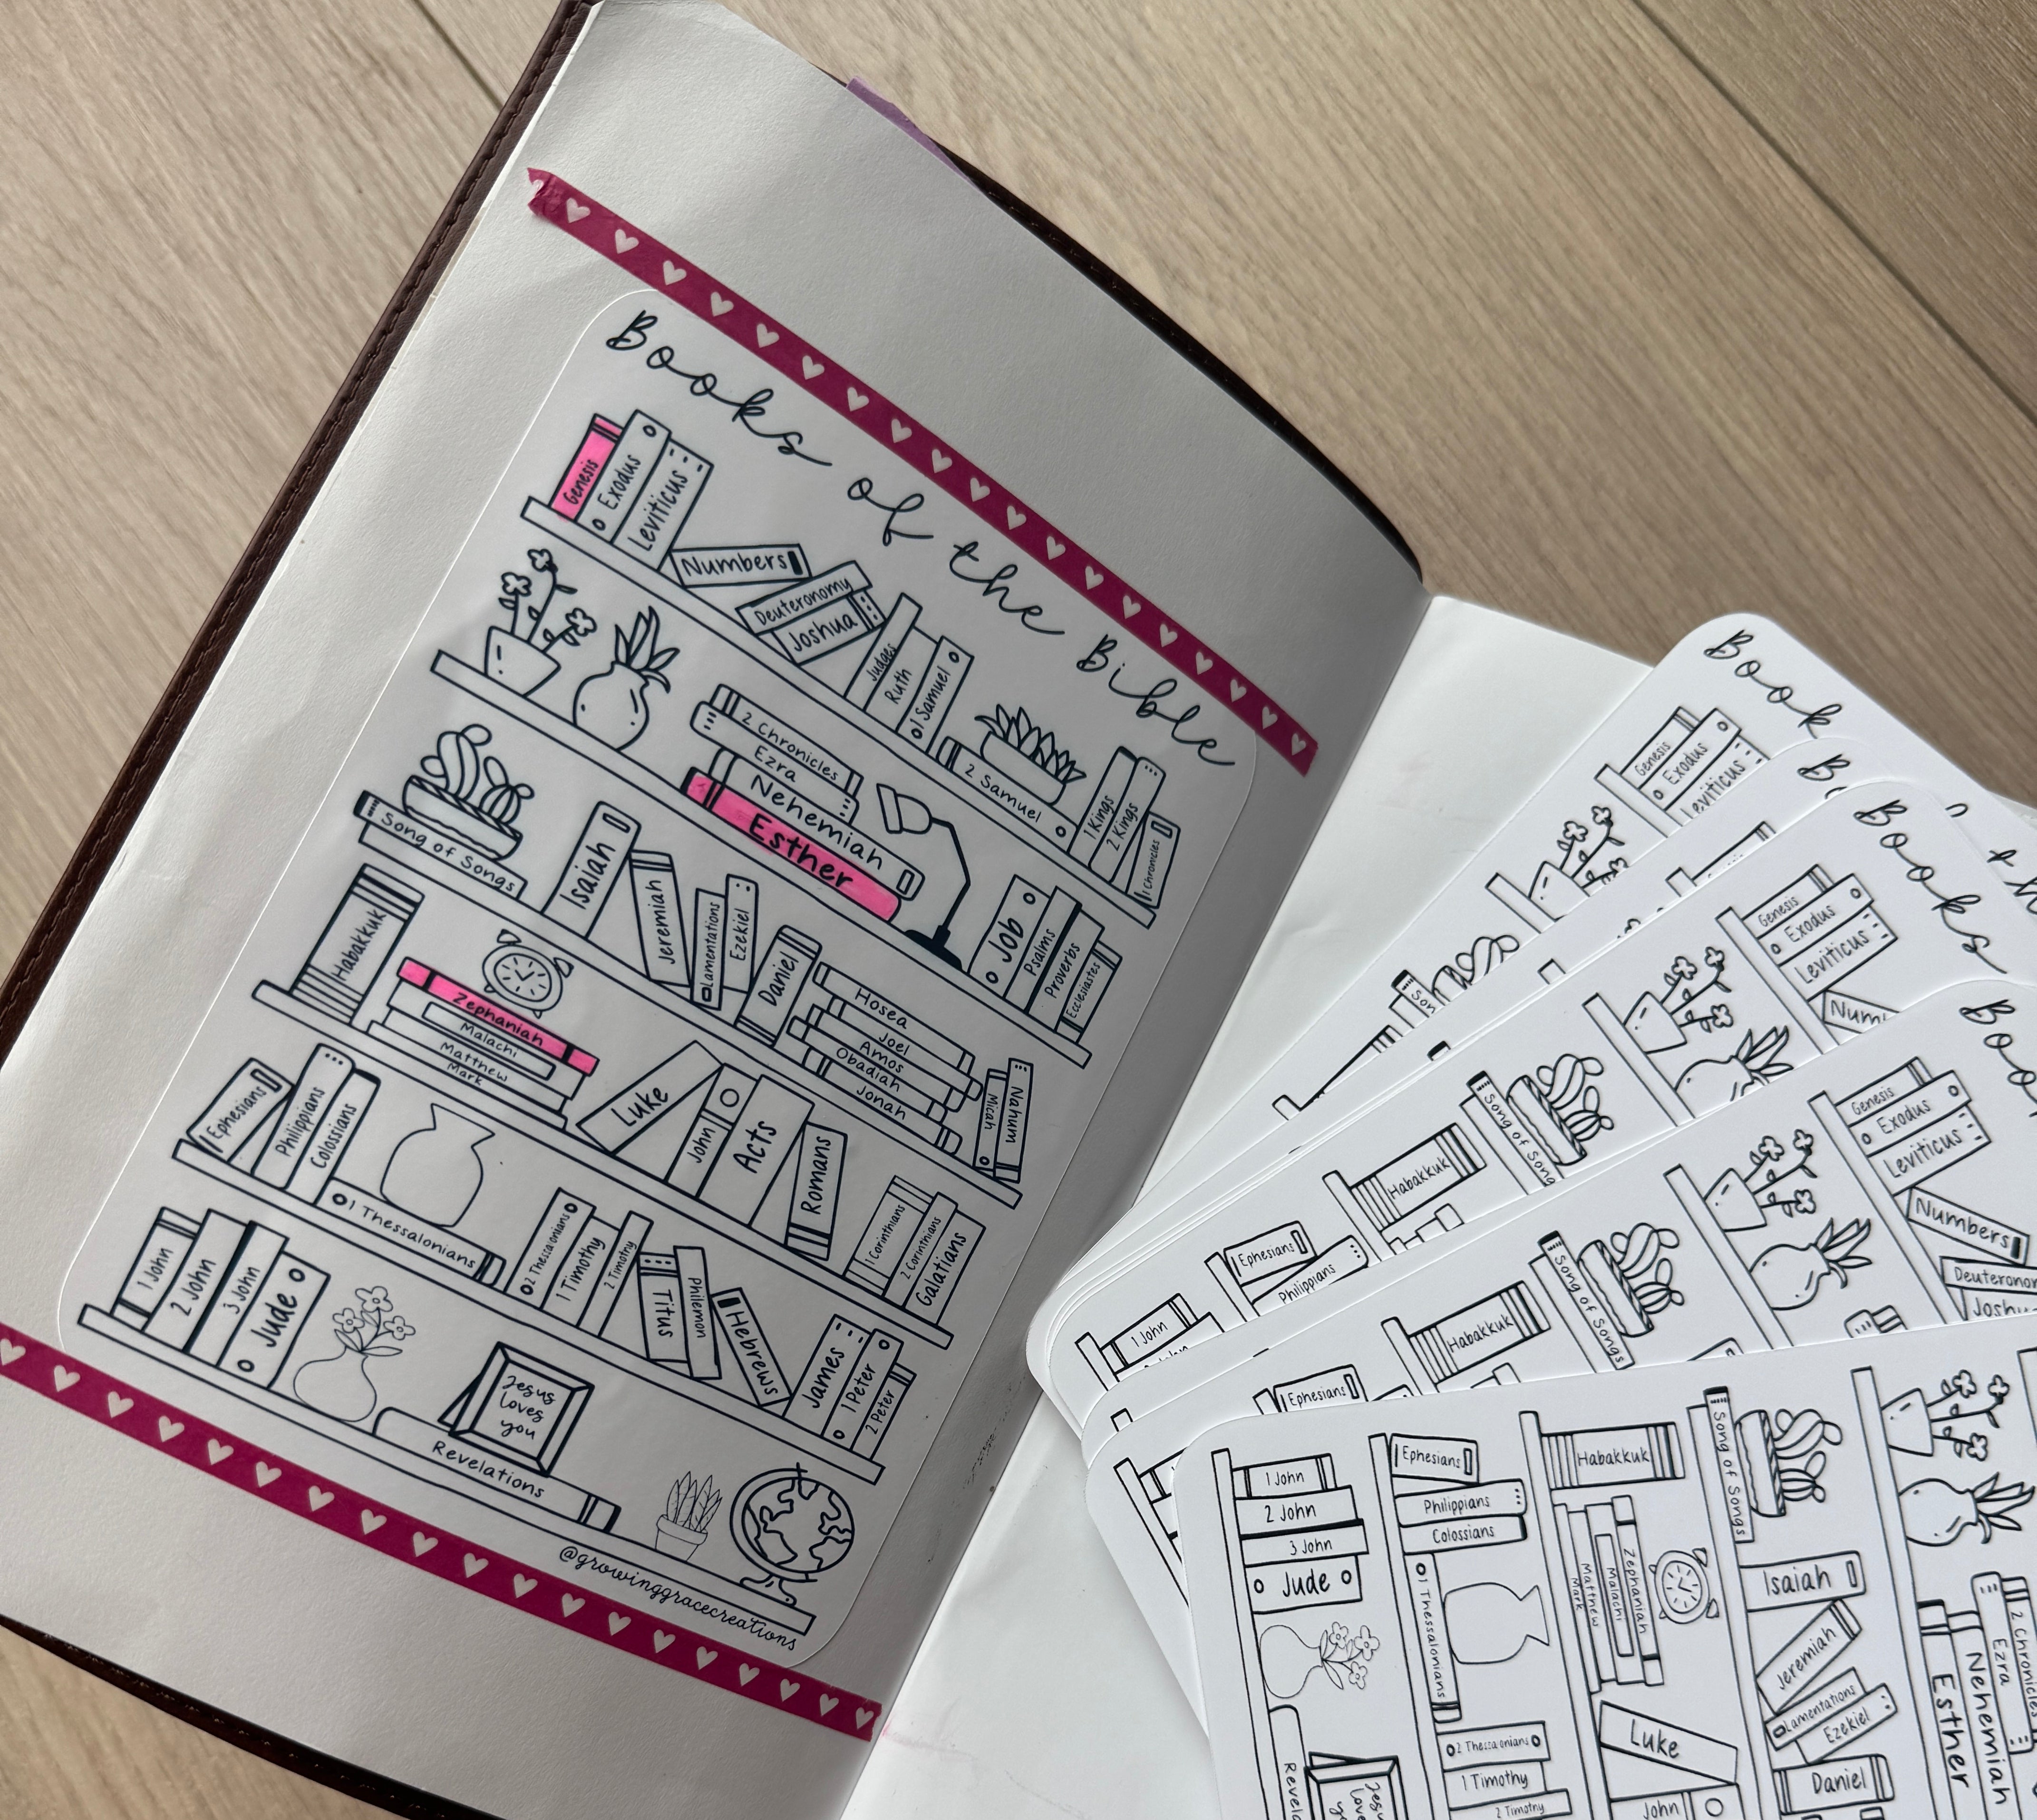 Books of the Bible
Genesis
Exodus
Leviticus
Numbers
Deuteronomy
Joshua
Judges
Ruth
1 Samuel
2 Samuel
1 Kings
2 Kings
1 Chronicles
2 Chronicles
Ezra
Nehemiah
Esther
Job
Psalms
Proverbs
Ecclesiastes
Song of Songs
Isaiah
Jeremiah
Lamentations
Ezekiel
Daniel
Hosea
Joel
Amos
Obadiah
Jonah
Micah
Nahum
Habakkuk
Zephaniah
Malachi
Matthew
Mark
Luke
John
Acts
Romans
1 Corinthians
2 Corinthians
Galatians
Ephesians
Philippians
Colossians
1 Thessalonians
2 Thessalonians
1 Timothy
2 Timothy
Titus
Philemon
Hebrews
James
1 Peter
2 Peter
1 John
2 John
3 John
Jude
Jesus
loves
you
Revelations
@growinggracecreations
Book
Genesis
Exodus
Leviticus
Books
Genesis
Exodus
Leviticus
Song of Song
Habakkuk
Ephesians
Philippians
1 John
Boo
Genesis
Exodus
Leviticus
Numbers
Deuteronom
Joshu
Song of Songs
Habakkuk
Ephesians
1 John
2 John
3 John
Jude
Ephesians
Philippians
Colossians
1 Thessalonians
2 Thessalonians
1 Timothy
2 Timothy
Habakkuk
Zephaniah
Malachi
Matthew
Mark
Luke
John
Song of Songs
Isaiah
Jeremiah
Lamentations
Ezekiel
Daniel
2 Chronicles
Ezra
Nehemiah
Esther